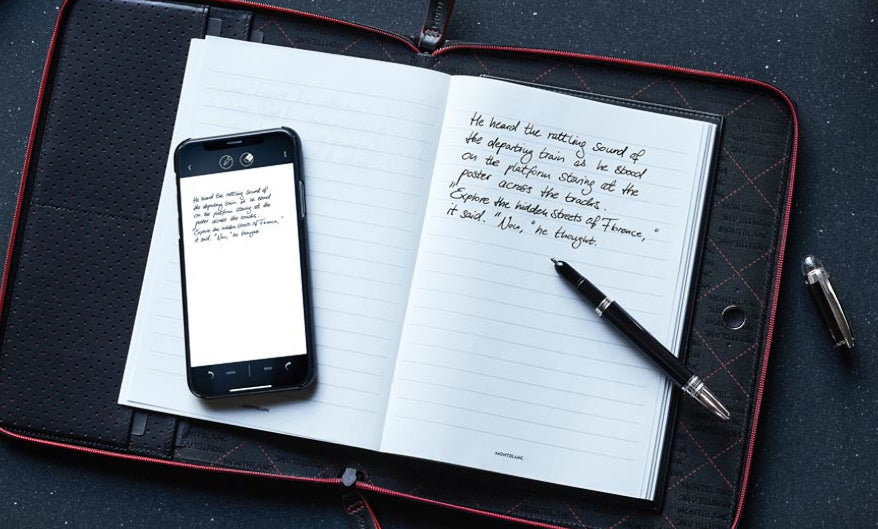 He heard the rattling sound of
the departing train as he stood
on the platform staring at the
poster across the tracks.
"Explore the hidden streets of Florence,"
it said. "Now," he thought.
He heard the rattling sound of
the departing train as he stood
on the platform staring at the
poster across the tracks.
"Explore the hidden streets of Florence,"
it said. "Now," he thought.
MONTBLANC
MONTBLANC